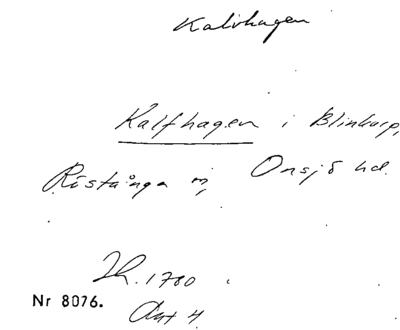 Kalvhagen
Kalfhagen i Blinkarp,
Röstånga sn, Onsjö hd.
Jb. 1780
Nr 8076.
Art 4